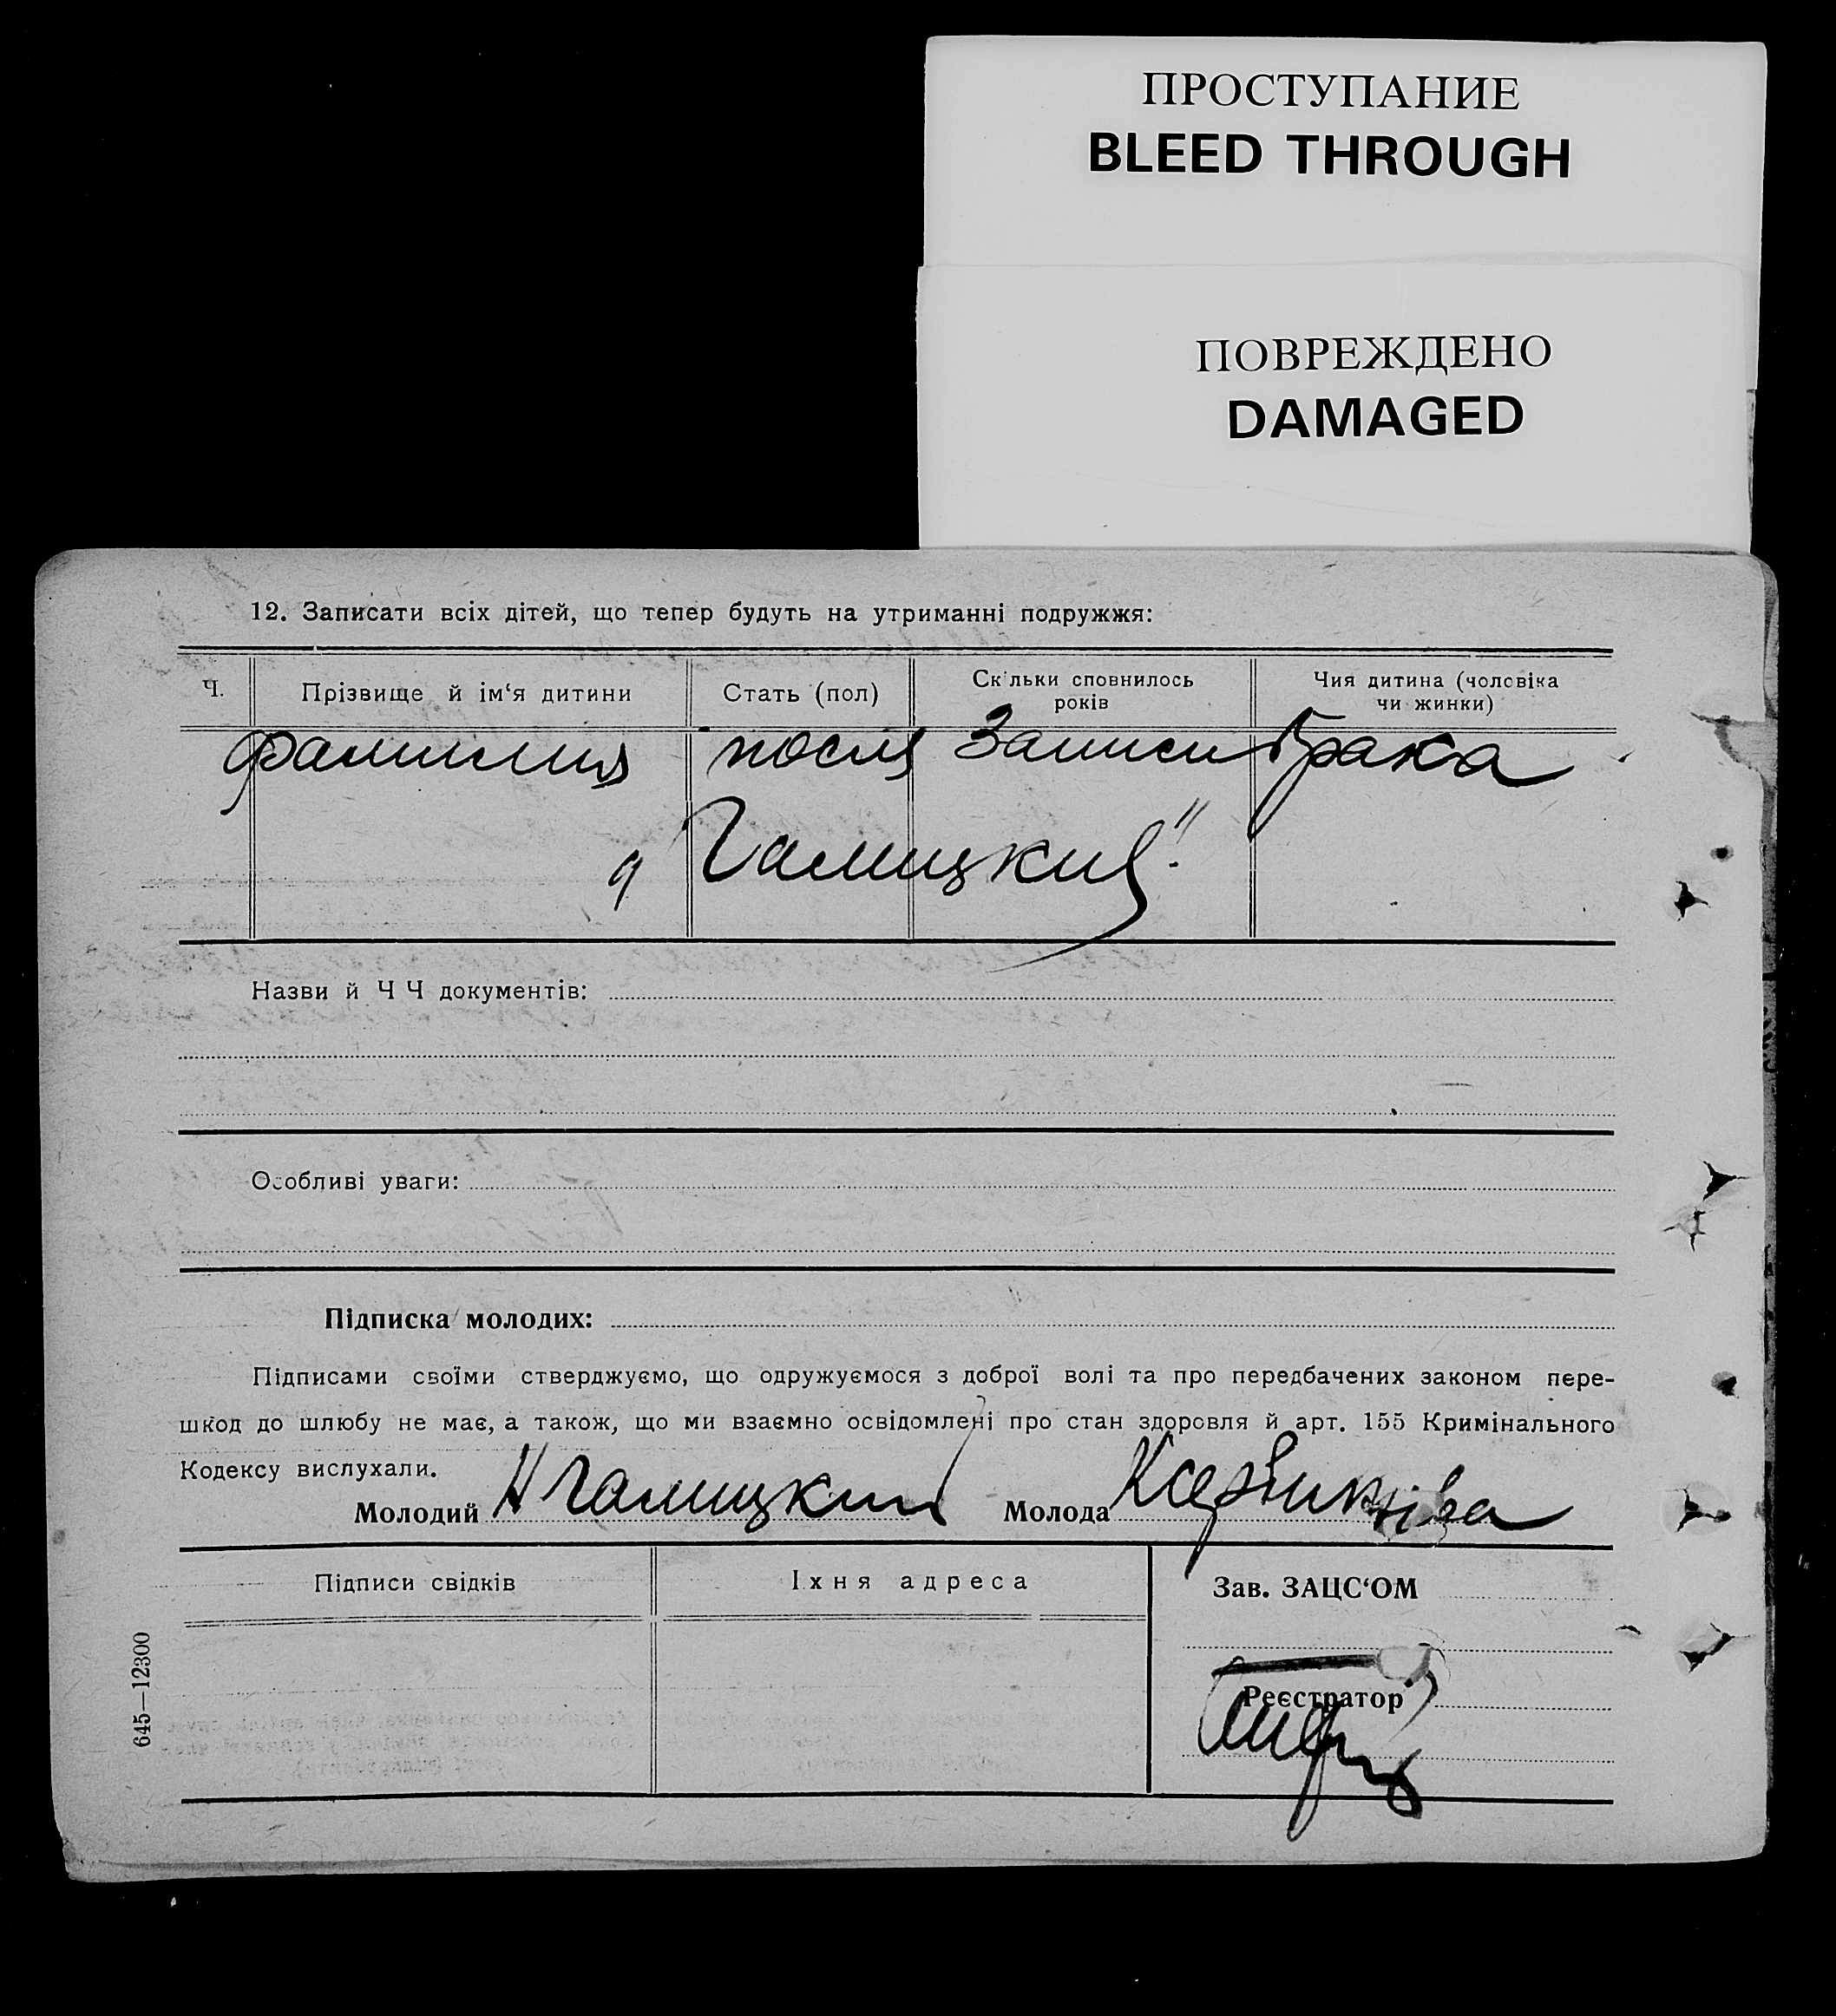 ПРОСТУПАНИЕ
BLEED THROUGH
ПОВРЕЖДЕНО
DAMAGED
12. Записати всіх дітей, що тепер будуть на утриманні подружжя:
Ч. Прізвище й ім‘я дитини Стать (пол) Скільки сповнилось років Чия дитина (чоловіка чи жинки)
фамилия после записи брака
„Галицкий".
Назви й Ч Ч документів:
Особливі уваги:
Підписка молодих:
Підписами своїми стверджуємо, що одружуємося з доброї волі та про передбачених законом пере-
шкод до шлюбу не має, а також, що ми взаємно освідомлені про стан здоровля й арт. 155 Кримінального
Кодексу вислухали.
Молодий Н Галицкий Молода
Підписи свідків Їхня адреса Зав. ЗАЦС‘ОМ
Реєстратор
645—12300